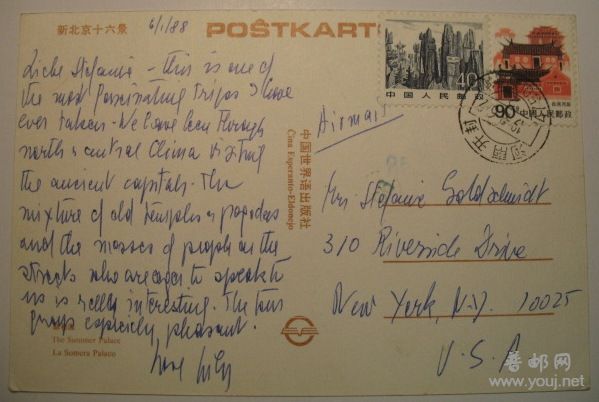 新北京十六景
6/1/88
POSTKARTO
Liebe Stefanie – this is one of
the most fascinating trips I have
ever taken. We have been through
north & central China visiting
the ancient capitals. The
mixture of old temples & pagodas
and the masses of people on the
streets who are eager to speak to
us is really interesting. The tour
group especially pleasant.
Love
The Summer Palace
La Somera Palaco
中国世界语出版社
Ĉina Esperanto-Eldonejo
Airmail
40
中国人民邮政
90
中国人民邮政
河南开封
Mrs Stefanie Goldschmidt
310 Riverside Drive
New York, N.Y. 10025
U.S.A
普邮网
www.youj.net